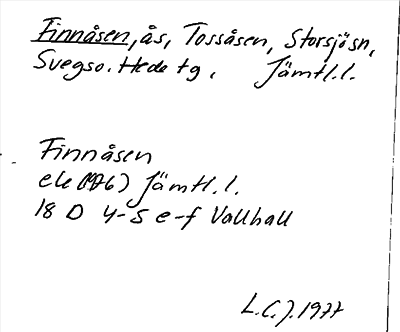 Finnåsen, ås, Tossåsen, Storsjö sn,
Svegs o. Hede tg, Jämtl.l.
Finnåsen
ek (1976) Jämtl.l.
18 D 4-5 e-f Vallhall
L.C.J. 1977